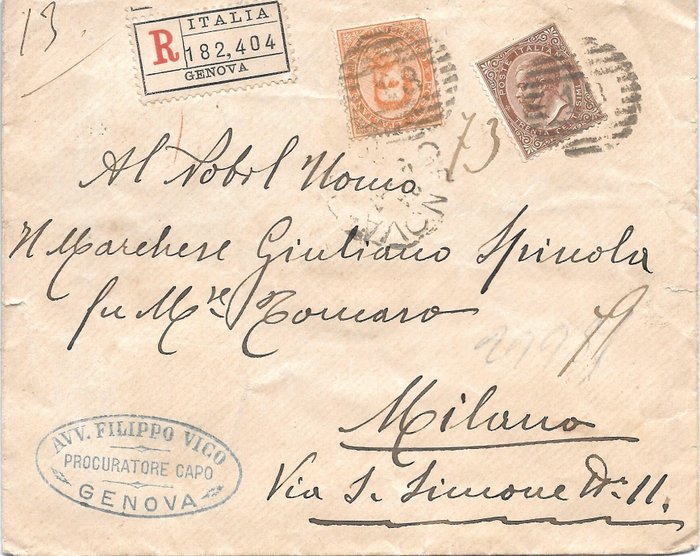 13.
R
ITALIA
182,404
GENOVA
POSTE ITALIANE
73
GENOVA
Al Nobil Uomo
Il Marchese Giuliano Spinola
fu M.se Tomaso
79
Milano
Via S. Simone N.° 11.
AVV. FILIPPO VICO
PROCURATORE CAPO
GENOVA